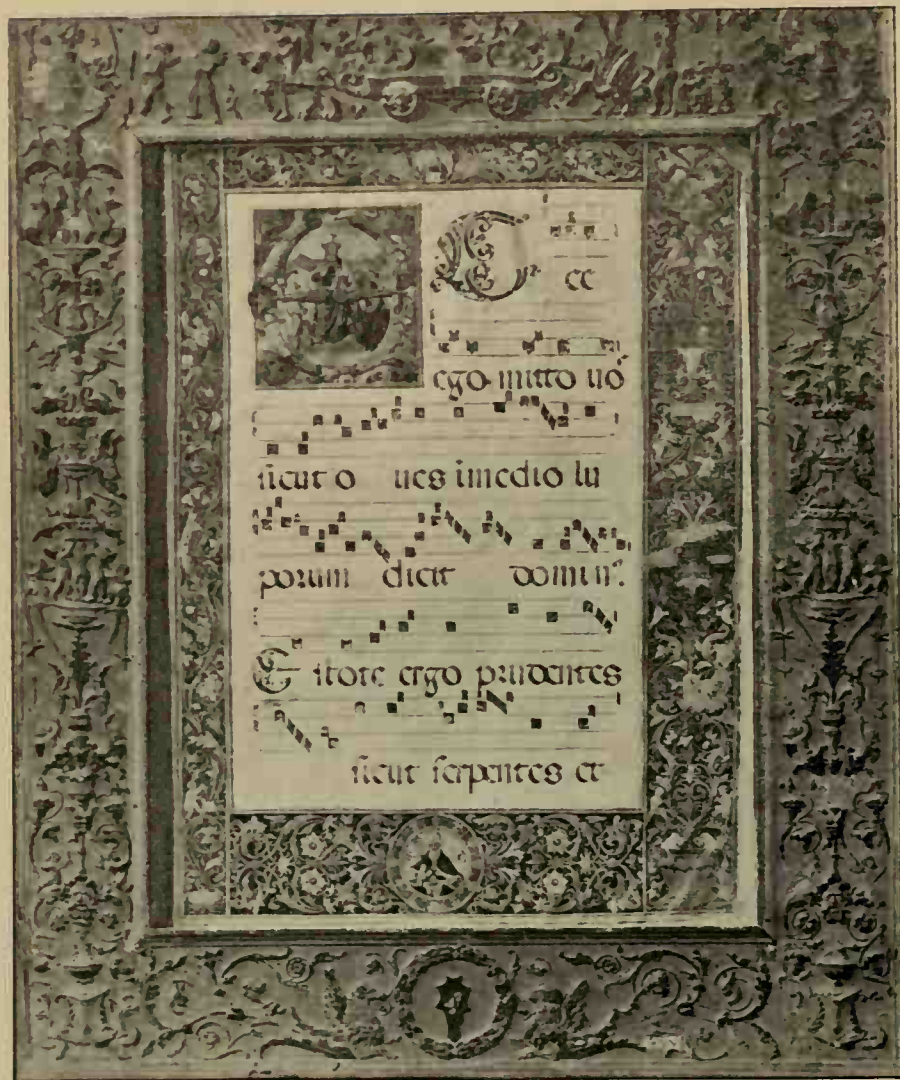 E cc
ego mitto uo⁹
ſicut o ues imedio lu
porum dicit domin⁹.
Eſtote ergo prudentes
ſicut ſerpentes et